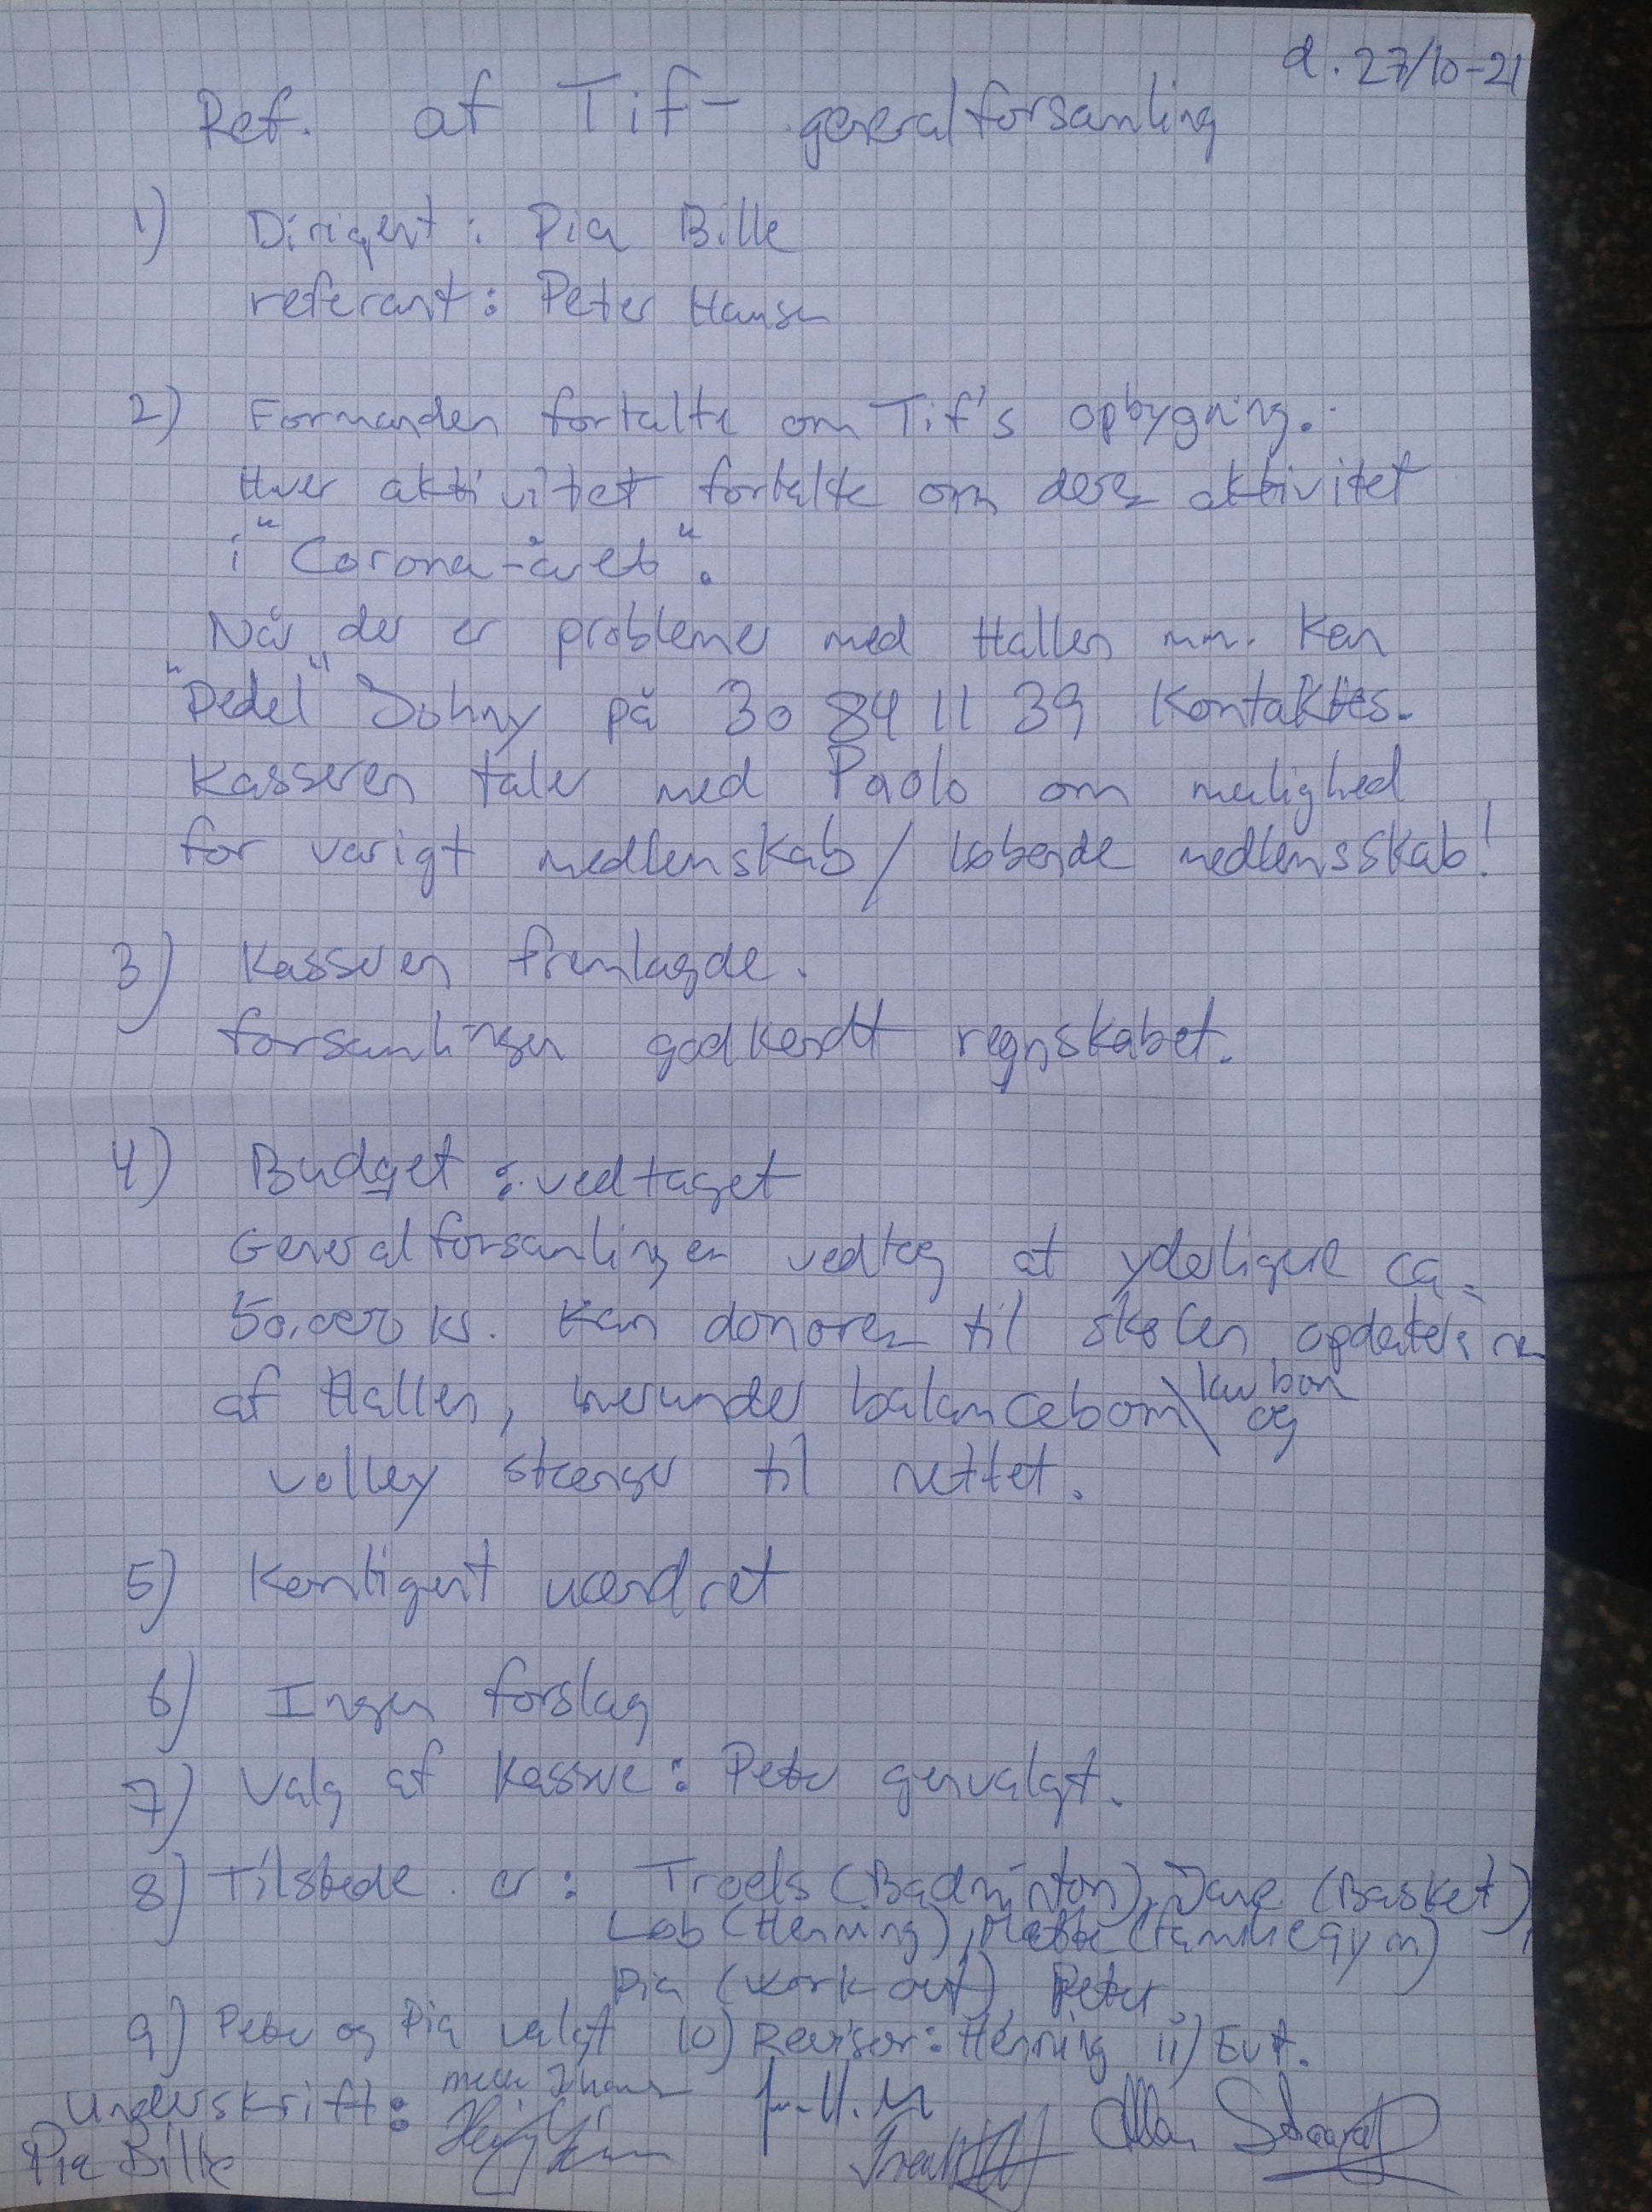 d. 27/10-21
Ref. af Tif- generalforsamling
1) Dirigent: Pia Bille
referant: Peter Hansen
2) Formanden fortalte om Tif's opbygning.
Hver aktivitet fortalte om deres aktivitet
i "Corona-året".
Når der er problemer med Hallen mm. kan
"Pedel" Johny på 30 84 11 39 kontaktes.
Kasseren taler med Paolo om mulighed
for varigt medlemskab / løbende medlemsskab!
3) Kasseren fremlagde.
forsamlingen godkendt regnskabet.
4) Budget: vedtaget
Generalforsamlingen vedtog at yderligere ca.
50.000 kr. kan donores til skolen opdatering
af Hallen, herunder balancebom \ lav bom og
volley stænger til nettet.
5) Kontigent uændret
6) Ingen forslag
7) Valg af kasserer: Peter genvalgt.
8) Tilstede er: Troels (Badminton), Jane (Basket),
Løb (Henning), Mette (familiegym)
Pia (work out), Peter
9) Peter og Pia valgt 10) Revisor: Henning 11) Evt.
Underskrift:
Pia Bille Allan